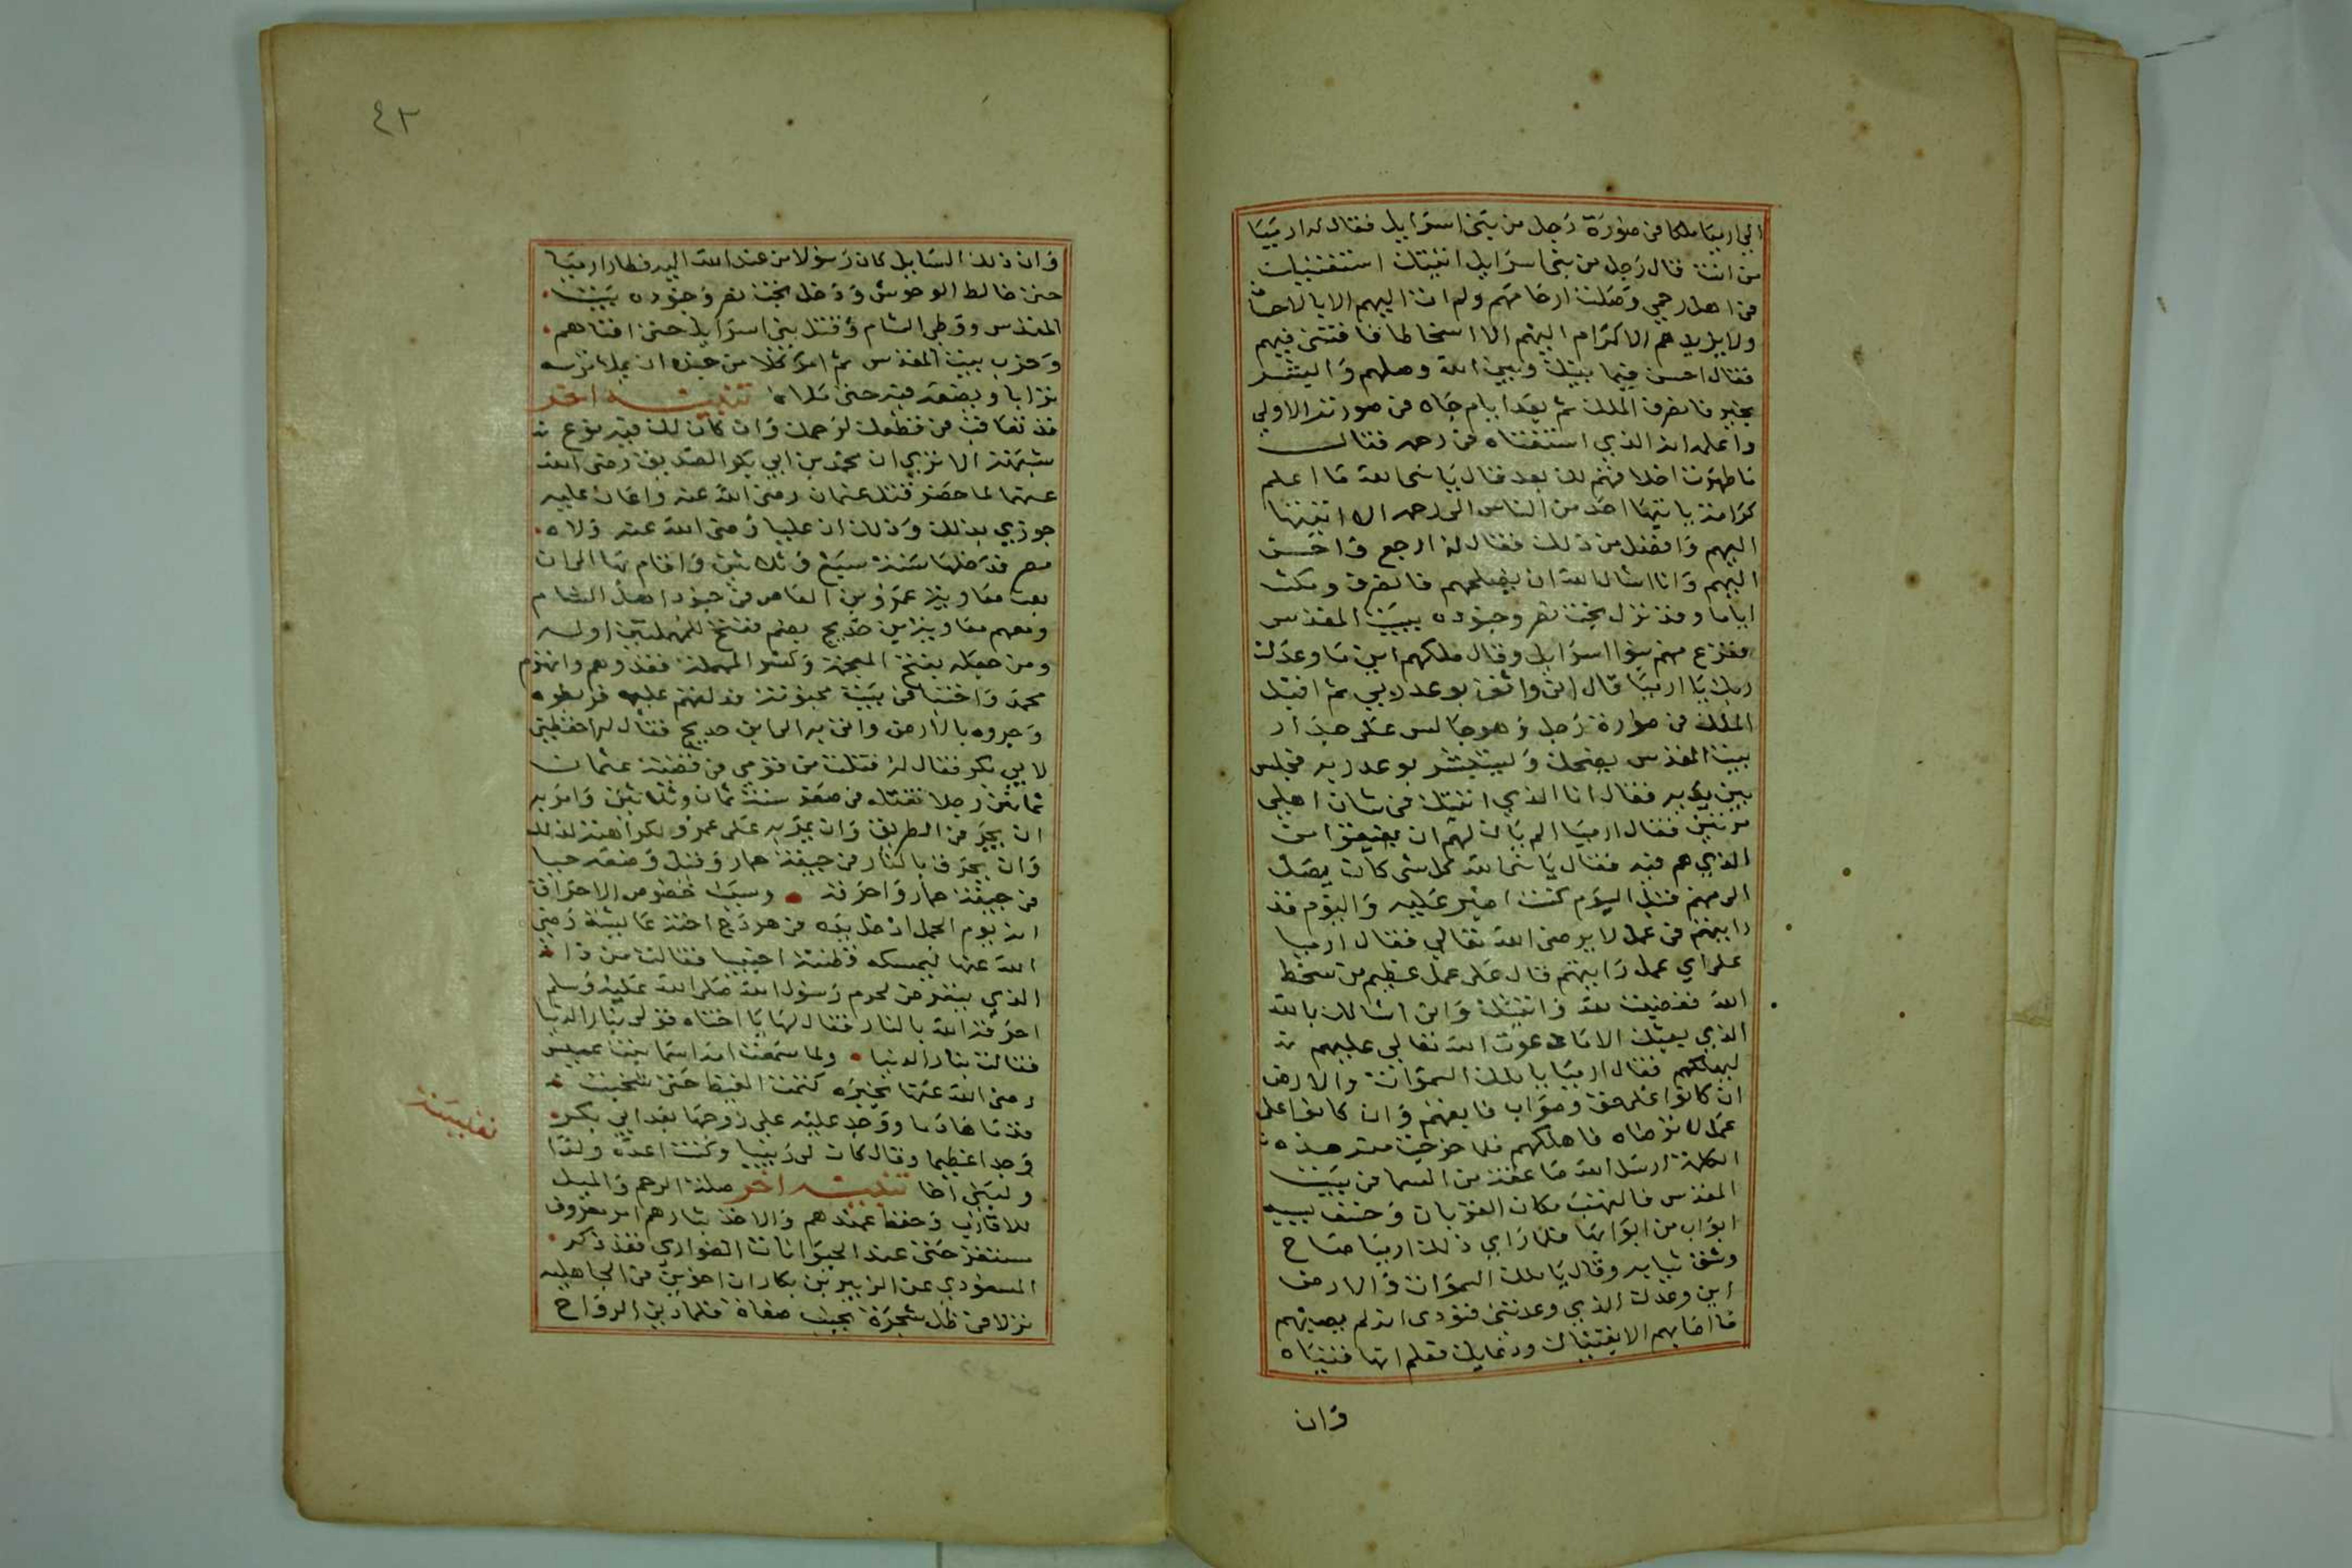 الى ارميا ملكا فى صورة رجل من بنى اسرايل فقال له ارميا
من انت قال رجل من بنى اسرايل اتيتك استفتيك
فى اهل رحمي وصلت ارحامهم ولم ات اليهم الا بالاحسان
ولا يزيدهم الاكرام اليهم الا اسخاطا فافتنى فيهم
فقال احسن فيما بينك وبين الله وصلهم وابشر
بخير فانصرف الملك ثم بعد ايام جاه فى صورته الاولى
واعلمه انه الذي استفتاه فى رحمه فقال
ما طهرت اخلاقهم لك بعد فقال يا نبى الله ما اعلم
كرامة ياتيها احد من الناس الى رحمه الا اتيتها
اليهم وافضل من ذلك فقال له ارجع واحسن
اليهم وانا اسال الله ان يصلحهم فانصرف ومكث
اياما وقد نزل بخت نصر وجنوده ببيت المقدس
ففزع منهم بنوا اسرايل وقال ملكهم اين ما وعدك
ربك يا ارميا قال انى واثق بوعد ربي ثم اقبل
الملك فى صورة رجل وهو جالس على جدار
بيت المقدس يضحك ويستبشر بوعد ربه فجلس
بين يديه فقال انا الذي اتيتك فى شان اهلي
مرتين فقال ارميا الم يان لهم ان يفيقوا من
الذي هم فيه فقال يا نبى الله كل شى كان يصل
الى منهم قبل اليوم كنت اصبر عليه واليوم قد
رايتهم فى عمل لا يرضى الله تعالى فقال ارميا
على اي عمل رايتهم قال على عمل عظيم من سخط
الله فغضبت لله واتيتك وانى اسالك بالله
الذي بعثك الا ما دعوت الله تعالى عليهم
ليهلكهم فقال ارميا يا ملك السموات والارض
ان كانوا على حق وصواب فابقهم وان كانوا على
عمل لا ترضاه فاهلكهم فلما خرجت منه هذه
الكلمة ارسل الله صاعقة من السما فى بيت
المقدس فالتهب مكان القربان وخسف بسبعة
ابواب من ابوابها فلما راي ذلك ارميا صاح
وشق ثيابه وقال يا ملك السموات والارض
اين وعدك الذي وعدتنى فنودى انه لم يصبهم
ما اصابهم الا بفتياك ودعايك فعلم انها فتياه
وان
٤٣
وان ذلك السايل كان رسولا من عند الله اليه فطار ارميا
حتى خالط الوحوش ودخل بخت نصر وجنوده بيت
المقدس ووطى الشام وقتل بنى اسرايل حتى افناهم
وخرب بيت المقدس ثم امر كلا من جنده ان يملا ترسه
ترابا ويضعه فيه حتى ملاه تنبيه اخر
قد تعاقب فى قطعك لرحمك وان كان لك فيه نوع
شبهة الا تري ان محمد بن ابى بكر الصديق رضى الله
عنهما لما حضر قتل عثمان رضى الله عنه واعان عليه
جوزي بذلك وذلك ان عليا رضى الله عنه ولاه
مصر فدخلها سنة سبع وثلاثين واقام بها الى ان
بعث معاوية عمرو بن العاص فى جنود اهل الشام
ومعهم معاوية بن حديج بضم ففتح للمهملتين اوله
ومن جعله بفتح المعجمة وكسر المهملة فقد وهم وانهزم
محمد واختبا فى بيت مجنونة فدلتهم عليه فربطوه
وجروه بالارض واتى به الى ابن حديج فقال له احفظنى
لابي بكر فقال له قتلت من قومى فى قضية عثمان
ثمانين رجلا فقتله فى صفر سنة ثمان وثلاثين وامر به
ان يجر فى الطريق وان يمر به على عمرو لكراهته لذلك
وان يحرق بالنار فى جيفة حمار وقيل وضعه حيا
فى جيفة حمار واحرقه وسبب خصوص الاحراق
انه يوم الجمل ادخل يده فى هودج اخته عايشة رضى
الله عنها ليمسكه فظنته اجنبيا فقالت من ذا
الذي يتعرض لحرم رسول الله صلى الله عليه وسلم
احرقه الله بالنار فقال لها يا اختاه قولى بنار الدنيا
فقالت بنار الدنيا ولما سمعت امه اسما بنت عميس
رضى الله عنها بخبره كتمت الغيظ حتى شخبت
ثدياها دما ووجد عليه على زوجها بعد ابى بكر
وجدا عظيما وقال كان لى ربيبا وكنت اعده ولدا
ولبنى اخا تنبيه اخر صلة الرحم والميل
للاقارب وحفظ عهدهم والاخذ بثارهم امر معروف
مستقر حتى عند الحيوانات الضواري فقد ذكر
المسعودي عن الزبير بن بكار ان اخوين فى الجاهلية
نزلا فى ظل شجرة بجنب صفاة فلما دنى الرواح
نفيسة